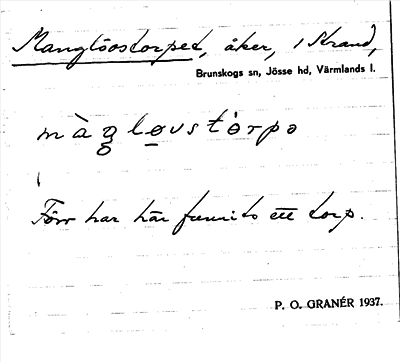 Manglöostorpet, åker, i Strand,
Brunskogs sn, Jösse hd, Värmlands l.
màgləvstȯrpə
Förr har här funnits ett torp.
P. O. GRANÉR 1937.